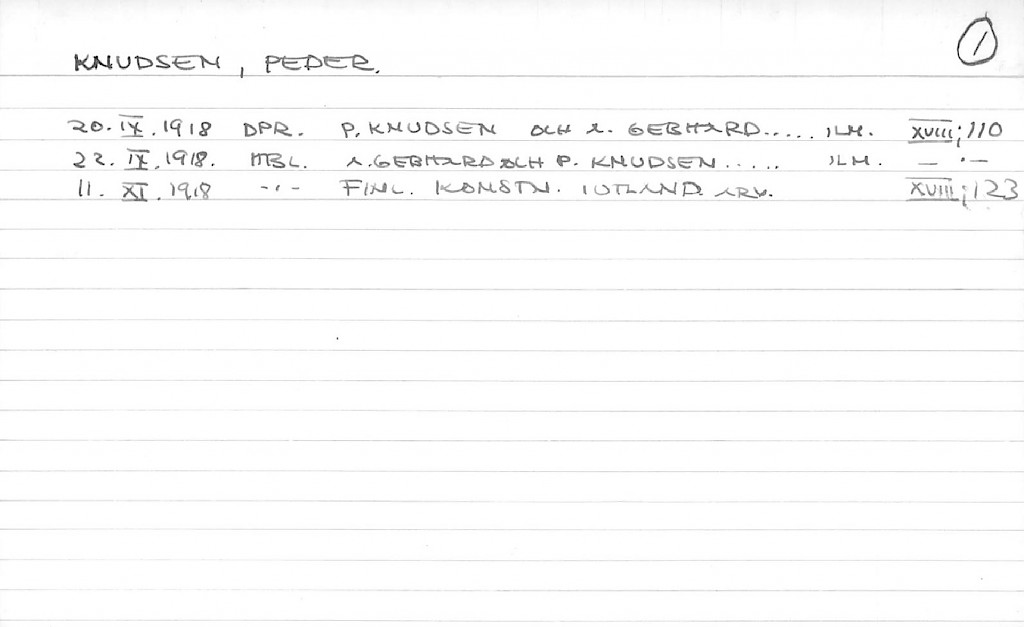 1
KNUDSEN, PEDER.
20.IX.1918 DPR. P. KNUDSEN OCH A. GEBHARD..... ILM. XVIII;110
22.IX.1918. HBL. A. GEBHARD OCH P. KNUDSEN..... ILM. — · —
11.XI.1918 -·- FINL. KONSTN. I UTLAND. ARV. XVIII;123